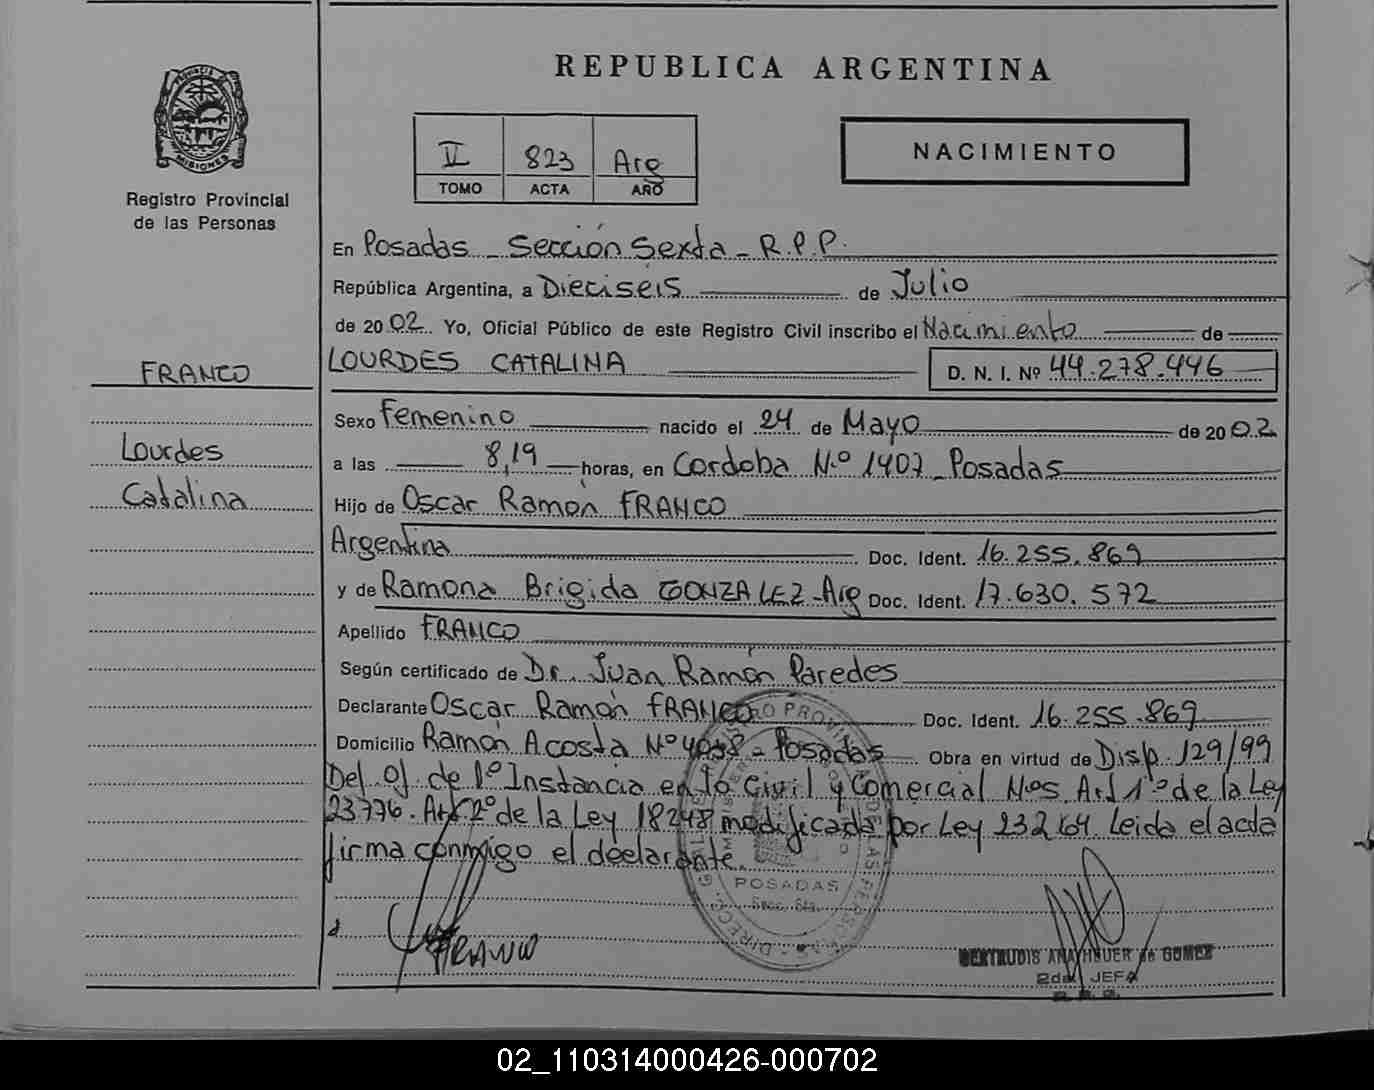 REPUBLICA ARGENTINA
MISIONES
Registro Provincial
de las Personas
II 823 Arg
TOMO ACTA AÑO
NACIMIENTO
FRANCO
Lourdes
Catalina
En Posadas - Sección Sexta - R.P.P.
República Argentina, a Dieciseis de Julio
de 2002. Yo, Oficial Público de este Registro Civil inscribo el Nacimiento de
LOURDES CATALINA D. N. I. Nº 44.278.446
Sexo Femenino nacido el 24 de Mayo de 2002
a las 8,19 horas, en Cordoba N.º 1407 - Posadas
Hijo de Oscar Ramón FRANCO
Argentina Doc. Ident. 16.255.869
y de Ramona Brigida GONZALEZ - Arg Doc. Ident. 17.630.572
Apellido FRANCO
Según certificado de Dr. Juan Ramón Paredes
Declarante Oscar Ramón FRANCO Doc. Ident. 16.255.869
Domicilio Ramón Acosta Nº - Posadas Obra en virtud de Disp. 129/99
Del Of. de 1º Instancia en lo Civil y Comercial N.os Art 1º de la Ley
23776. Art 2º de la Ley 18248 modificada por Ley 23264 Leida el acta
firma conmigo el declarante.
POSADAS
Secc. 6ta.
FRANCO
GERTRUDIS ANA HEUER de GOMEZ
2da. JEFA
02_110314000426-000702